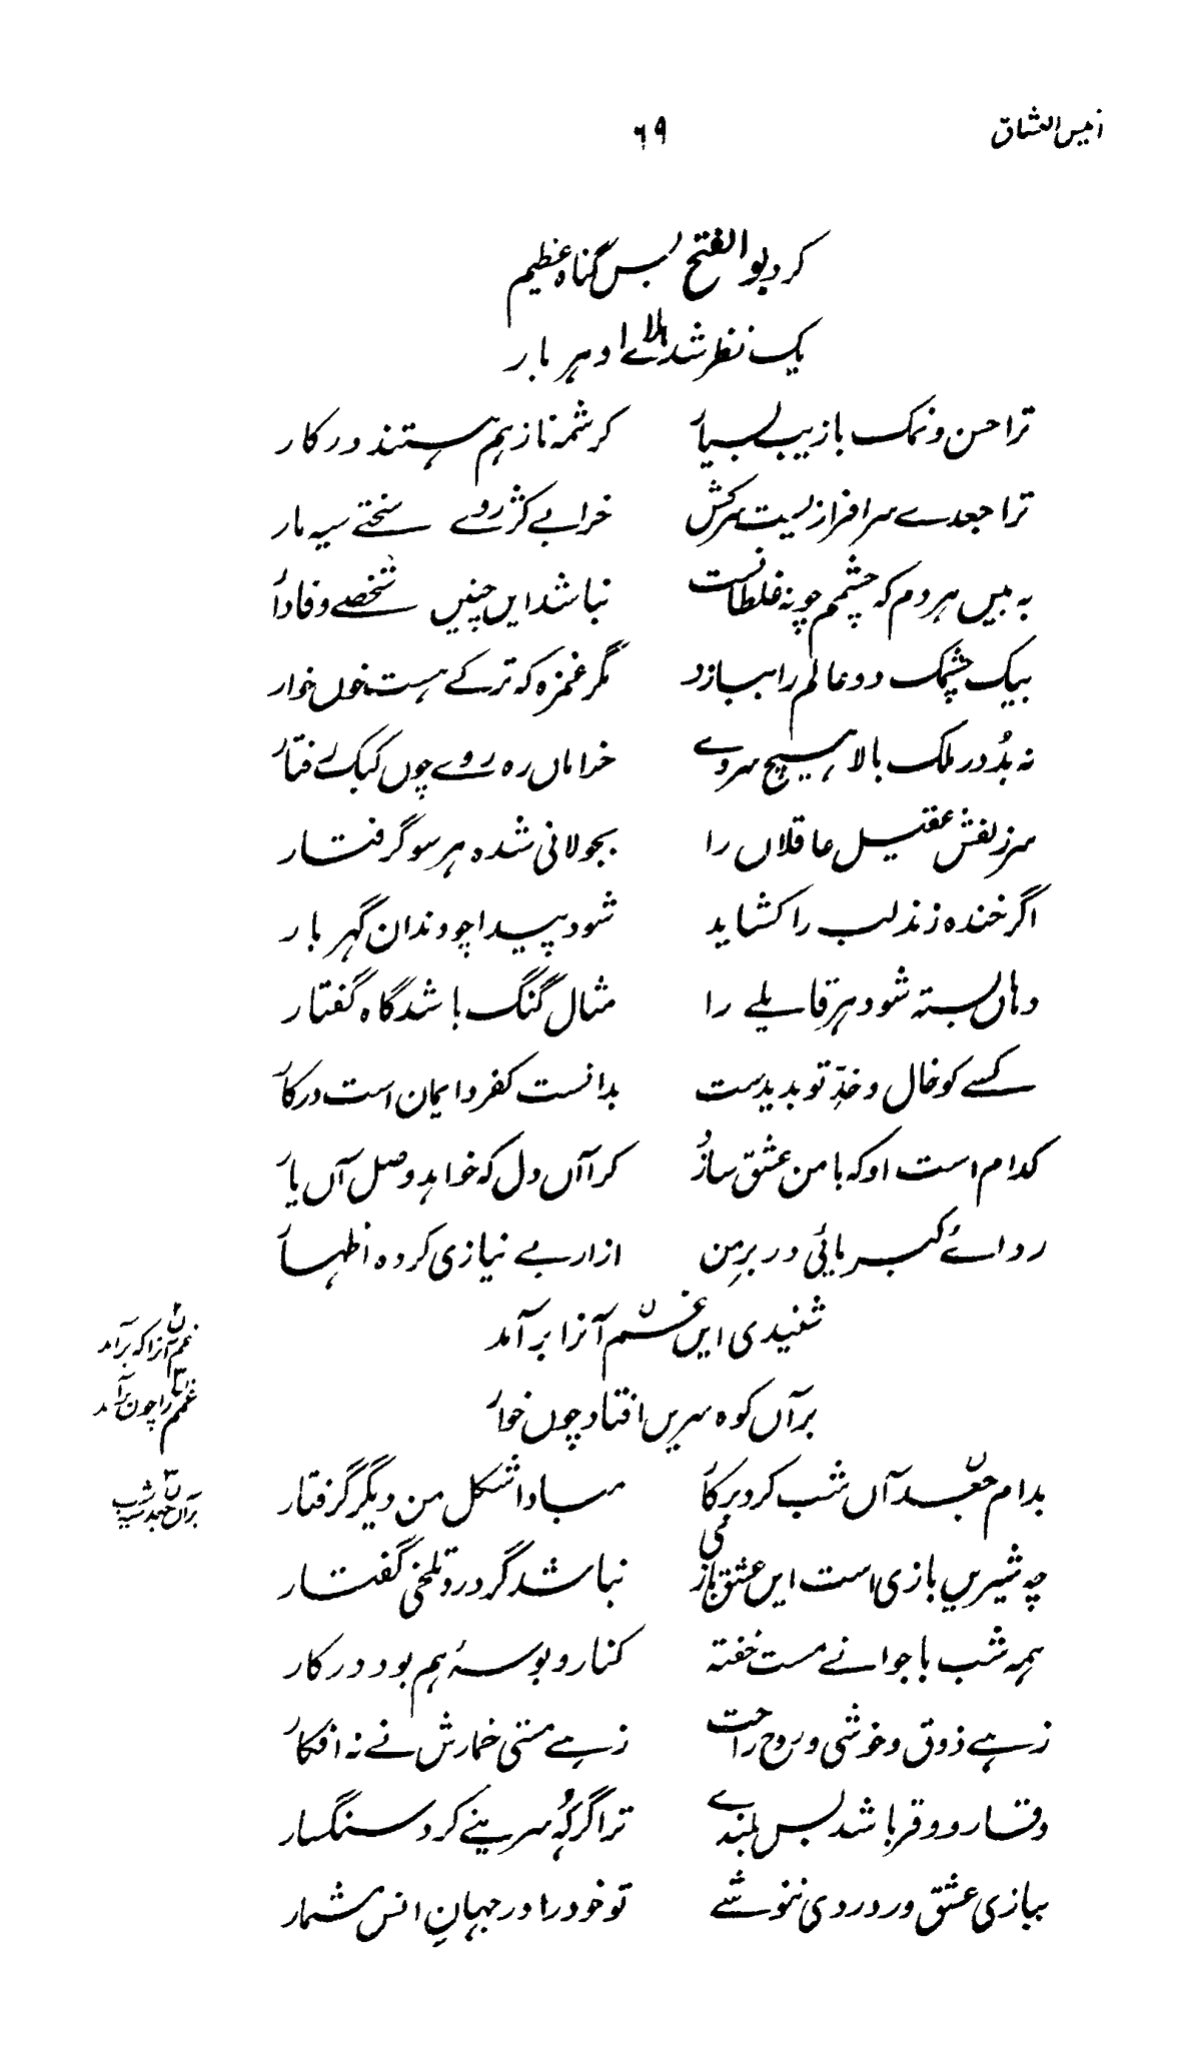 انیس العشاق ۶۹
کرد بوالفتح بس گناہ عظیم
یک نظر شد او ہر بار
ترا حسن و نمک با زیب بسیار کرشمہ ناز ہم ہستند در کار
ترا جعدے سرافرازیست سرکش خرابے کژ روے سختے سیہ مار
بہ بیں ہر دم کہ چشمم چونہ غلطانست نباشد ایں چنیں شخصے وفادار
بیک چشمک دو عالم را ببازد مگر غمزہ کہ ترکے ہست خوں خوار
نہ بُد در ملک بالا ہیچ سروے خراماں رہ روے چوں کبک رفتار
سر زلفش عقیل عاقلاں را بجولانی شدہ ہر سو گرفتار
اگر خندہ زند لب را کشاید شود پیدا چو دندان گہر بار
دہاں بستہ شود ہر قابلے را مثال گنگ باشد گاہ گفتار
کسے کو خال و خدِّ تو بدیدست بدانست کفر و ایمان است در کار
کدام است او کہ با من عشق سازد کرا آں دل کہ خواہد وصل آں یار
ردائے کبریائی در برِ من ازار بے نیازی کردہ اظہار
شنیدی ایں غم آنرا برآمد
غم آنرا کہ برآمد
بر آں کوہ سریں افتاد چوں خوار
غم را چون برآمد
بدام جعد آں شب کرد برکار مبادا شکل من دیگر گرفتار
براں جعد شب
چہ شیریں بازی است ایں عشق بازی نباشد گر درو تلخی گفتار
ہمہ شب با جوانے مست خفتہ کنار و بوسۂ ہم بود در کار
زہے ذوق و خوشی و روح راحت زہے مستی خمارش نے نہ افکار
وقار و وقر باشد بس بلندے ترا گر کُہ سرینے کرد سنگسار
ببازی عشق ور دردی ننوشے تو خود را در جہانِ انس مشمار